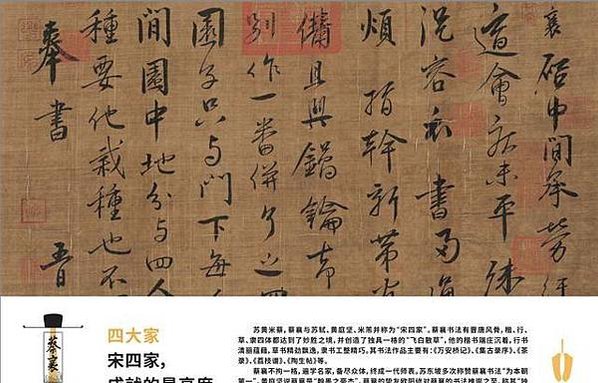 襄 啓中間承勞行
道會 未平
况容 書
煩 指幹新带
且與鐍鑰
別作一番併了之
園子只与門下每
間園中地分与四人
種要他栽種也不
奉書
蔡襄
四大家
宋四家,
成就的最高度
苏黄米蔡,蔡襄与苏轼、黄庭坚、米芾并称为“宋四家”。蔡襄书法有晋唐风骨,楷、行、
草、隶四体都达到了妙胜之境,并创造了独具一格的“飞白散草”,他的楷书端庄沉着,行书
清丽蕴藉,草书精劲飘逸,隶书工整精巧。其书法作品主要有:《万安桥记》、《集古录序》、《茶
录》、《荔枝谱》、《陶生帖》等。
蔡襄不拘一格,遍学名家,备尽众体,终成一代师表。苏东坡多次称赞蔡襄书法“为本朝
第一”,黄庭坚说蔡襄是“翰墨之豪杰”,